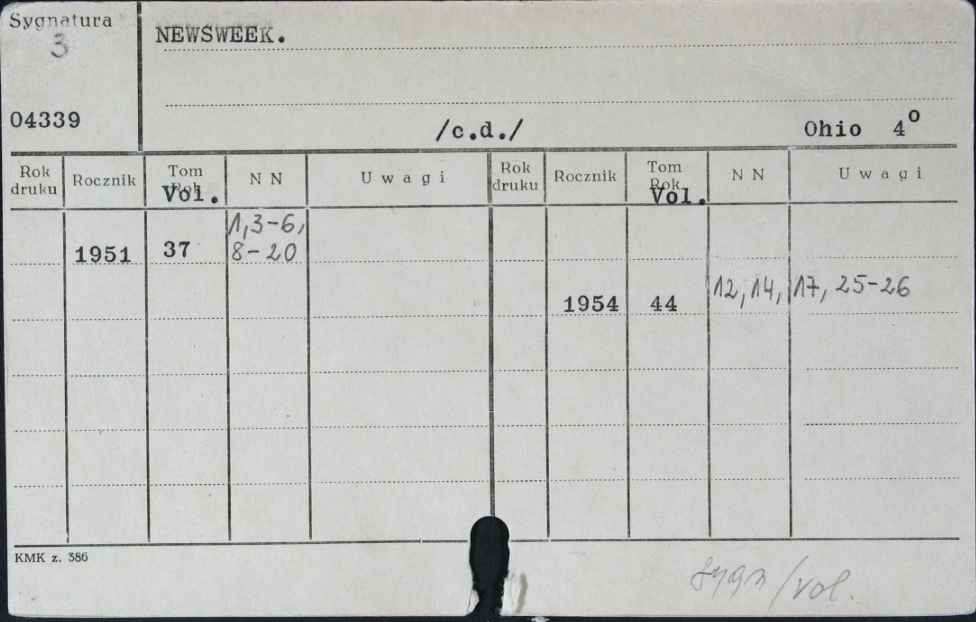 Sygnatura
3
NEWSWEEK.
04339
/c.d./
Ohio 4⁰
Rok druku Rocznik Tom Rok Vol. N N Uwagi Rok druku Rocznik Tom Rok Vol. N N Uwagi
1951 37 1,3-6, 8-20
1954 44 12, 14, 17, 25-26
KMK z. 386
sygn/vol.